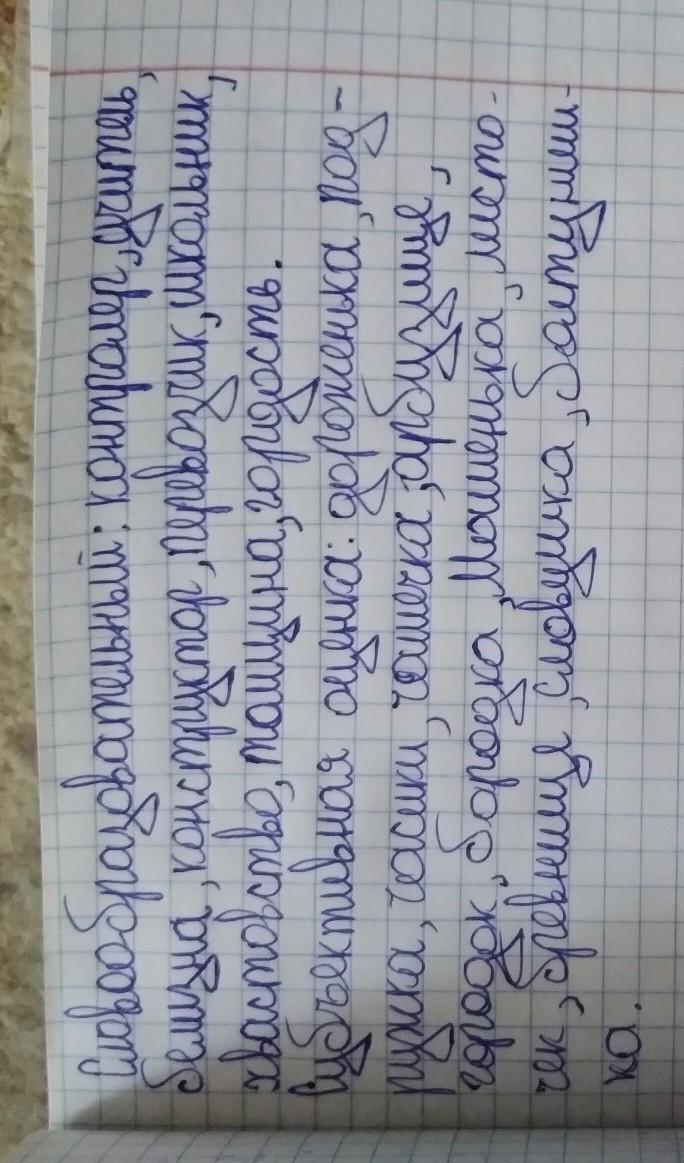 Словообразовательный: контролер, учитель,
белизна, конструктор, перевозчик, школьник,
хвастовство, тощина, гордость.
Субъективная оценка: дороженька, под-
ружка, часики, чашечка, арбузище,
городок, бородка, Машенька, листо-
чек, бревнище, словушка, болтунишш-
ка.